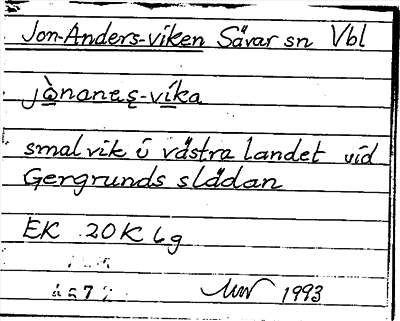 Jon-Anders-viken Sävar sn Vbl
jànanaş-vika
smal vik i västra landet vid
Gergrunds slädan
EK 20K 6g
1993